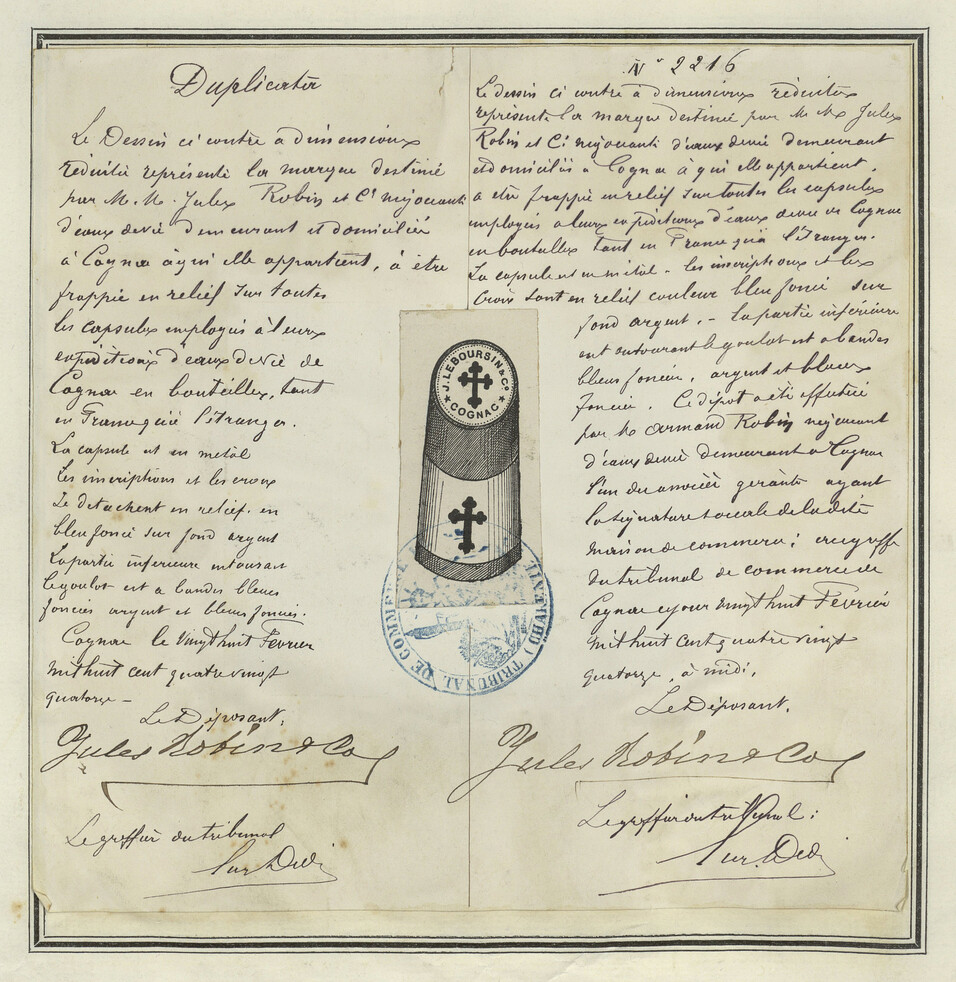 Duplicata
Le Dessin ci contre à dimensions
réduites représente la marque destinée
par M. M. Jules Robin et Cie négociants
d'eaux de vie demeurant et domiciliés
à Cognac à qui elle appartient, à être
frappée en relief sur toutes
les capsules employés à leurs
expéditions d'eaux de vie de
Cognac en bouteilles, tant
en France qu'à l'étranger.
La capsule est en métal
Les inscriptions et les croix
se détachent en relief en
bleu foncé sur fond argent
La partie inférieure entourant
le goulot est à bandes bleues
foncées argent et bleues foncées.
Cognac le vingt huit Février
mil huit cent quatre vingt
quatorze -
Le Déposant,
Jules Robin & Co
Le greffier du tribunal
J. LEBOURSIN & Co
COGNAC
TRIBUNAL DE COMMERCE
(CHARENTE)
No 2216
Le dessin ci contre à dimensions réduites
représente la marque destinée par M M Jules
Robin et Cie négociants d'eaux de vie demeurant
et domiciliés à Cognac à qui elle appartient,
a être frappée en relief sur toutes les capsules
employés a leurs expéditions d'eaux de vie de Cognac
en bouteilles tant en France qu'à l'étranger.
La capsule est en métal - les inscriptions et les
croix sont en relief couleur bleu foncé sur
fond argent. - La partie inférieure
entourant le goulot est a bandes
bleus foncées, argent et bleues
foncées. Ce dépôt a été effectué
par M Armand Robin négociant
d'eaux de vie demeurant à Cognac
l'un des associés gérants ayant
la signature sociale de la dite
maison de commerce; au greffe
du tribunal de commerce de
Cognac ce jour vingt huit Février
mil huit cent quatre vingt
quatorze, à midi,
Le Déposant,
Jules Robin & Co
Le greffier du tribunal: